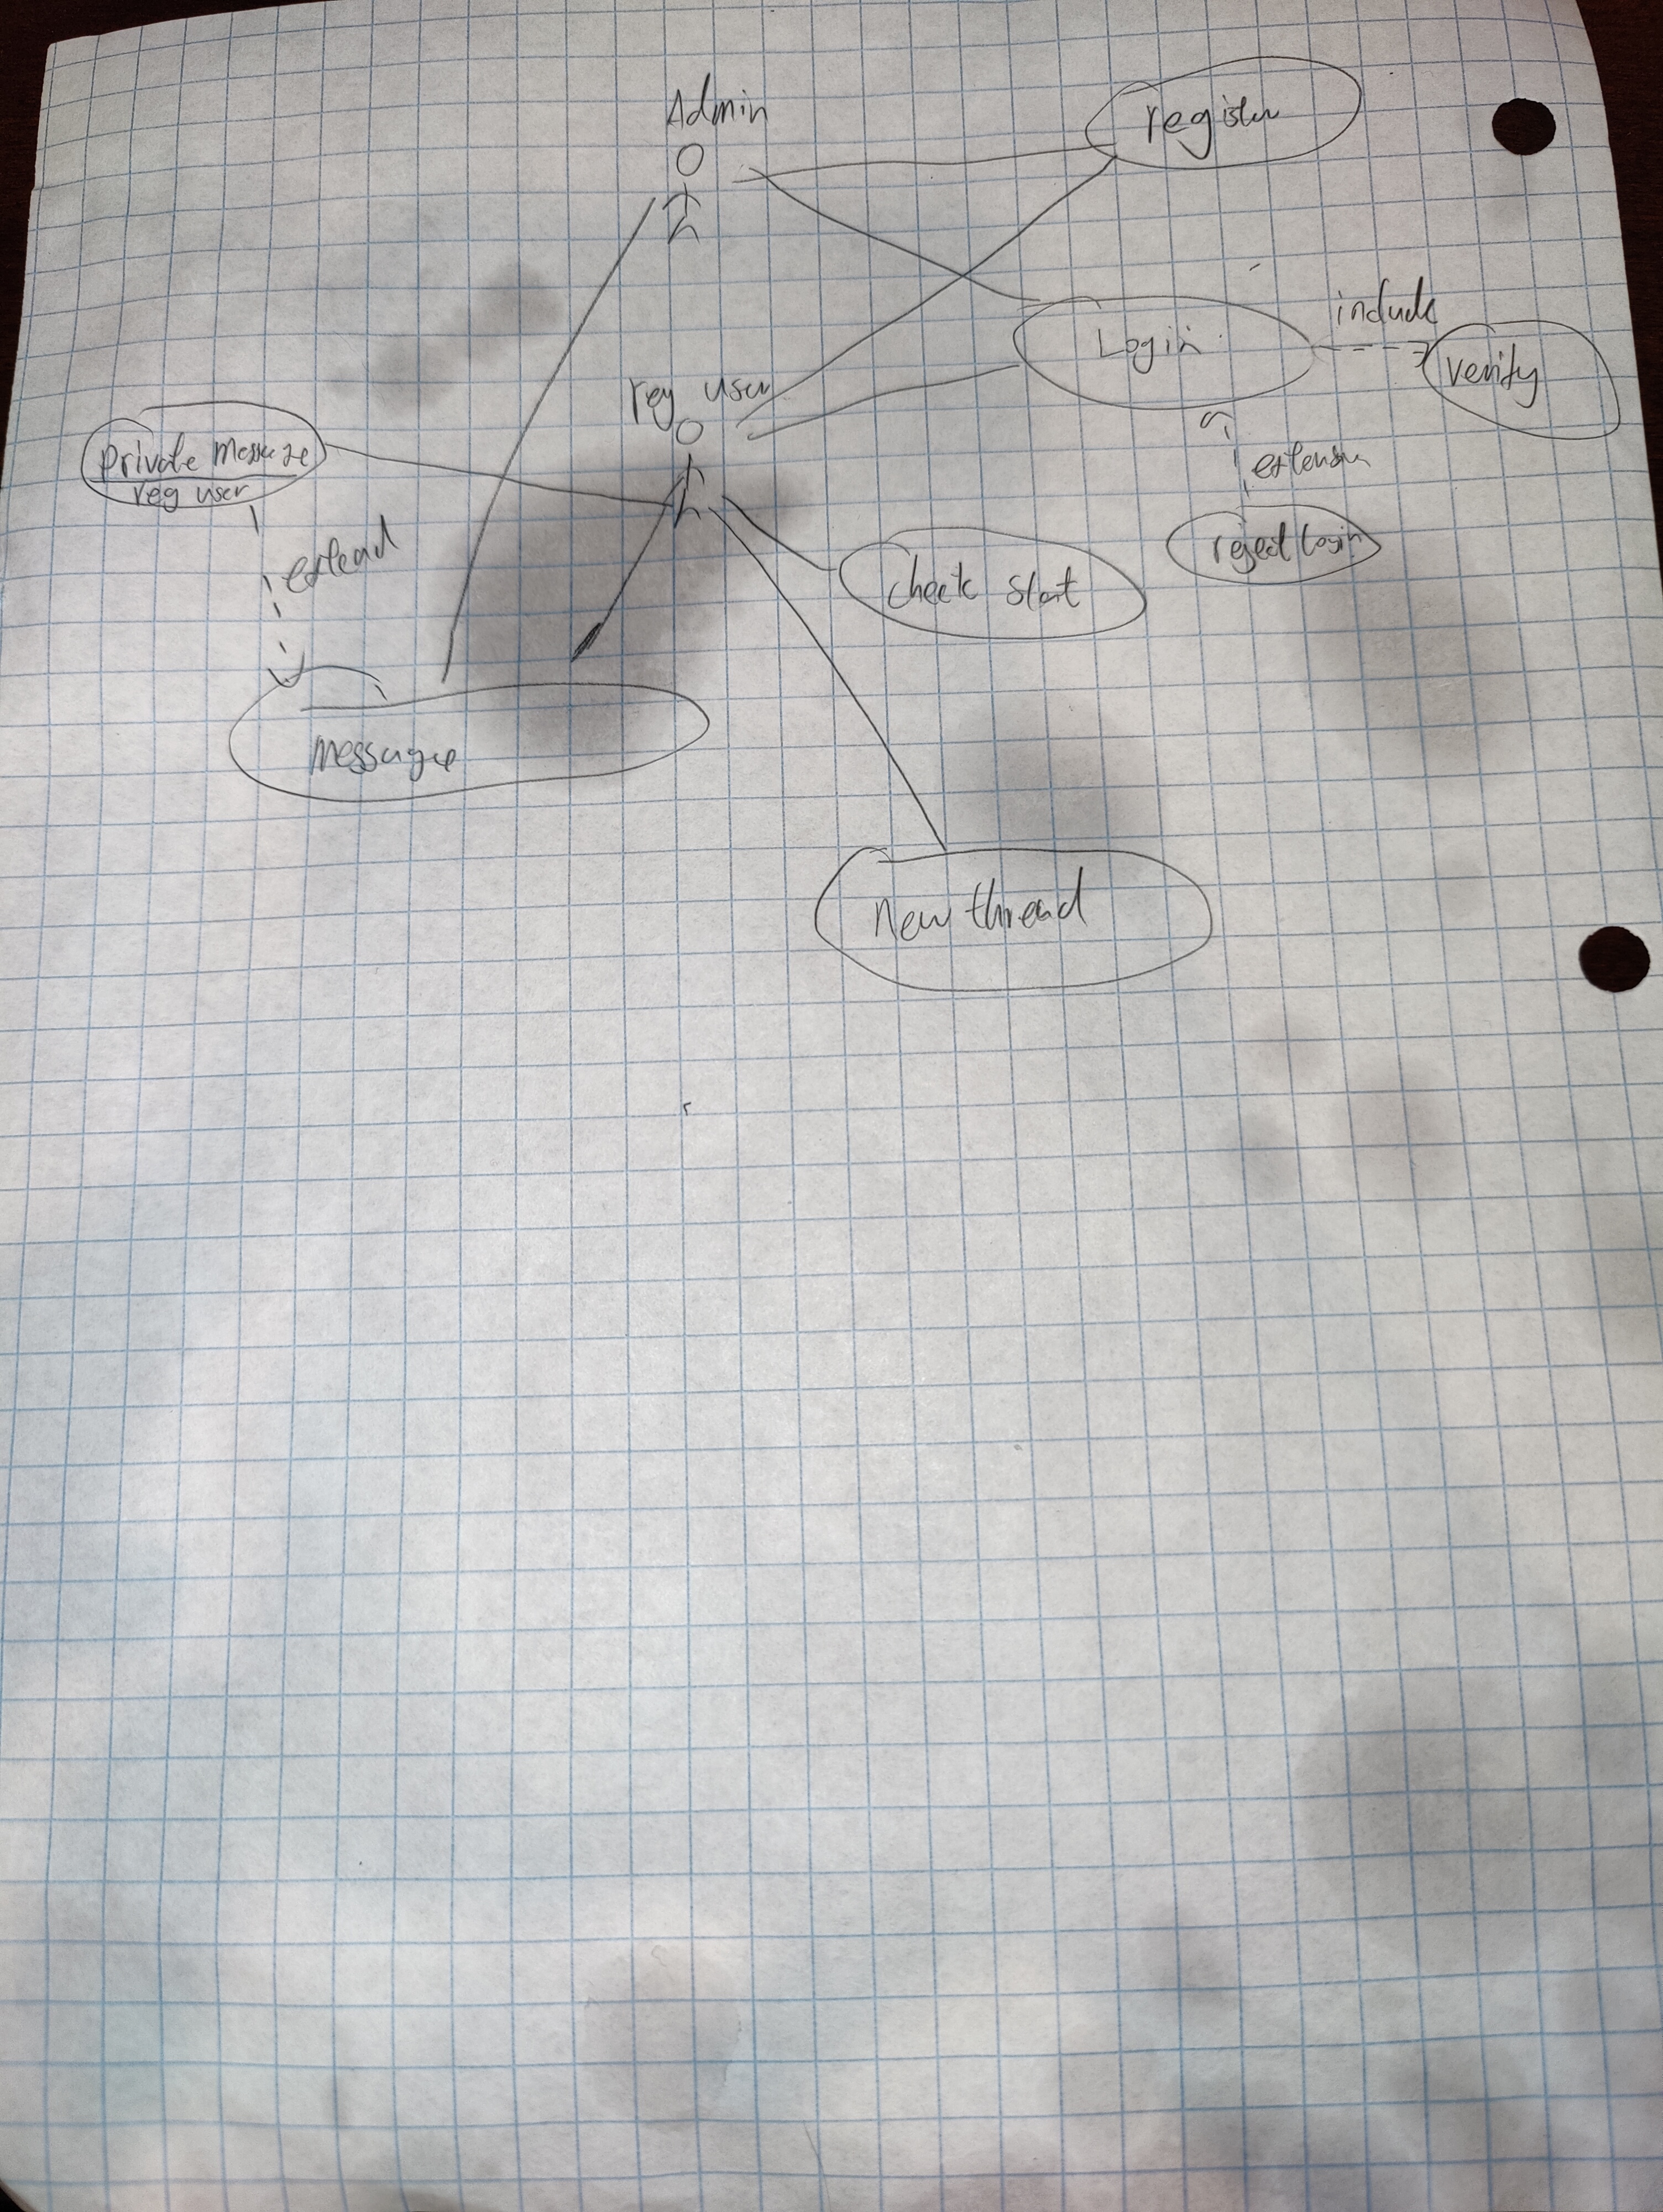 Admin
register
include
Login
verify
reg user
private message
reg user
extension
extend
reject Login
check stat
message
New thread